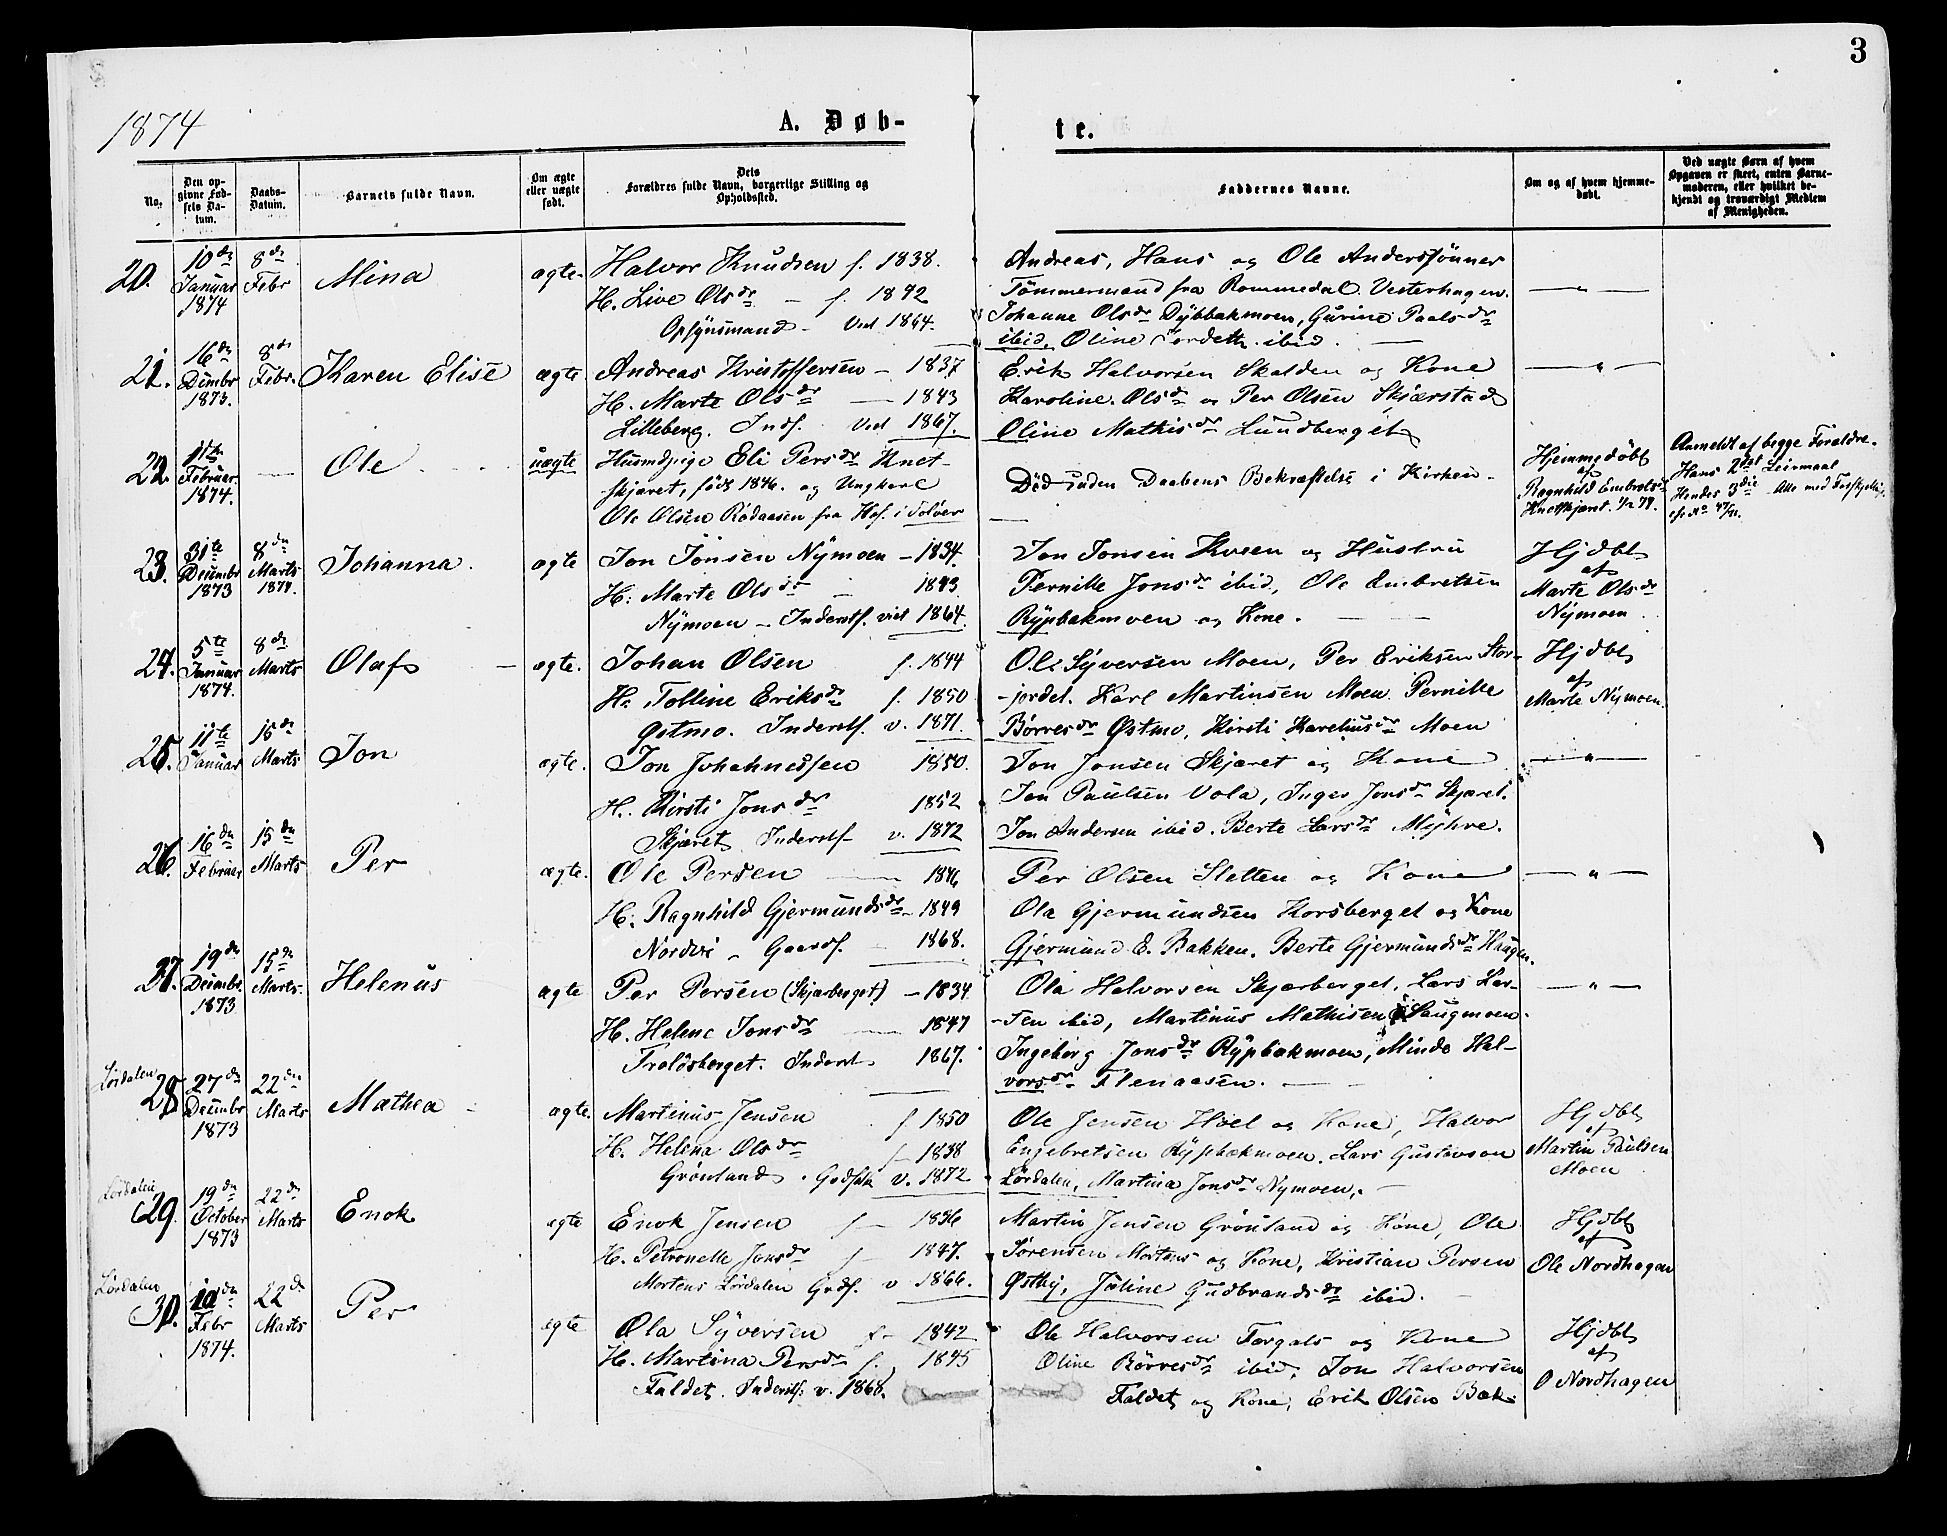 3
1874
A. Døb-
te.
No.
Den op-
givne Fød-
sels Da-
tum.
Daabs-
Datum.
Barnets fulde Navn.
Om ægte
eller uægte
født.
Dets
Forældres fulde Navn, borgerlige Stilling og
Opholdssted.
Faddernes Navne.
Om og af hvem hjemme-
døbt.
Ved uægte Børn af hvem
Opgaven er skeet, enten Barne-
moderen, eller hvilket be-
kjendt og troværdigt Medlem
af Menigheden.
20.
10de
Januar
1874
8de
Febr
Mina
ægte.
Halvor Knudsen f. 1838.
H. Live Olsdr - f. 1842
Opsynsmand - Viet 1864.
Andreas, Hans og Ole Anderssønner
Tømmermænd fra Rommedal. Vesterhagen.
Johanne Olsdr Dybbakmoen, Gurine Paalsdr
ibid, Oline ibid.
— " —
21.
16de
Dcmbr
1873.
8de
Febr.
Karen Elise
ægte
Andreas Kristoffersen - 1837
H. Marte Olsdr — 1843
Lilleberg. Inds. Viet 1867.
Erik Halvorsen Skalden og Kone
Karoline Olsdr og Per Olsen Skjærstad
Oline Mathisdr Lundberget
— " —
22.
11te
Februar
1874.
—
Ole
uægte
Husmdpige Eli Persdr Knet-
skjæret, født 1846. og Ungkarl
Ole Olsen Rødaasen fra Hof i Soløer
Død inden Daabens Bekræftelse i Kirken.
Hjemmedøbt
af
Ragnhild Embretsdr
Knetskjæret.
Anmeldt af begge Forældre.
Hans 2det Leiermaal
Hendes 3die
23.
31te
Decembr
1873
8de
Marts
1874.
Johanna.
ægte
Jon Jonsen Nymoen - 1834.
H: Marte Olsdr - 1843.
Nymoen - Inderst. viet 1864.
Jon Jonsen Kveen og Hustru
Pernille Jonsdr ibid, Ole Embretsen
Rypbakmoen og Kone.
Hjdbt
af
Marte Olsdr
Nymoen
24.
5te
Januar
1874.
8de
Marts
Olaf
ægte.
Johan Olsen f. 1844
H. Tolline Eriksdr f. 1850
Østmo. Inderst. v. 1871.
Ole Syversen Moen, Per Eriksen Stor-
-jordet. Karl Martinsen Moen Pernille
Børresdr Østmo, Kirsti Kareliusdr Moen
Hjdbt
af
Marte Nymoen.
25.
11te
Januar
15de
Marts
Jon
ægte.
Jon Johannessen 1850.
H. Kirsti Jonsdr 1852
Skjæret Inderst v. 1872
Jon Jonsen Skjæret og Kone
Jon Paulsen Vola, Inger Jonsdr Skjæret.
Jon Andersen ibid. Berte Larsdr Myhre.
— " —
26.
16de
Februar
15de
Marts
Per
ægte.
Ole Persen — 1846
H. Ragnhild Gjermundsdr - 1849
Nordvi - Gaards. - 1868.
Per Olsen Sletten og Kone
Ola Gjermundsen Korsberget og Kone
Gjermund E. Bakken. Berte Gjermundsdr Haugen.
— " —
27.
19de
Decembr.
1873
15de
Marts.
Helenus
ægte
Per Persen (Skjærberget) - 1834
H. Helene Jonsdr — 1847
Troldsberget. Inderst 1867.
Ola Halvorsen Skjærberget, Lars Lar-
-sen ibid, Martinus Mathisen i Haugmoen.
Ingeborg Jonsdr Rypbakmoen, Minda Hal-
vorsdr Flenaasen.
— " —
Lørdalen
28
27de
Decembr
1873
22de
Marts
Mathea
ægte.
Martinus Jensen f 1850
H. Helena Olsdr f 1838
Grønland. Grdfslk v. 1872
Ole Jensen Hoel og Kone, Halvor
Engebretsen Rypbakmoen. Lars Gustavson
Lørdalen, Martina Jonsdr Nymoen.
Hjdbt
af
Martin Paulsen
Moen
Lørdalen
29.
19de
October
1873
22de
Marts
Enok
ægte
Enok Jensen f — 1836
H. Petronelle Jonsdr f - 1847.
Mortens Lørdalen Grdf. v 1866.
Martin Jensen Grønland og Kone, Ole
Sørensen Mortens og Kone, Kristian Persen
Østby, Juline Gudbrandsdr ibid.
Hjdbt
af
Ole Nordhagen
Lørdalen
30.
10de
Febr
1874.
22de
Marts
Per
ægte
Ola Syversen f - 1842
H. Martina Persdr f. 1845
Faldet. Inderst: v. 1868.
Ole Halvorsen Torgals og Kone
Oline Børresdr ibid, Jon Halvorsen
Faldet og Kone, Erik Olsen Bak
Hjdbt
af
O Nordhagen